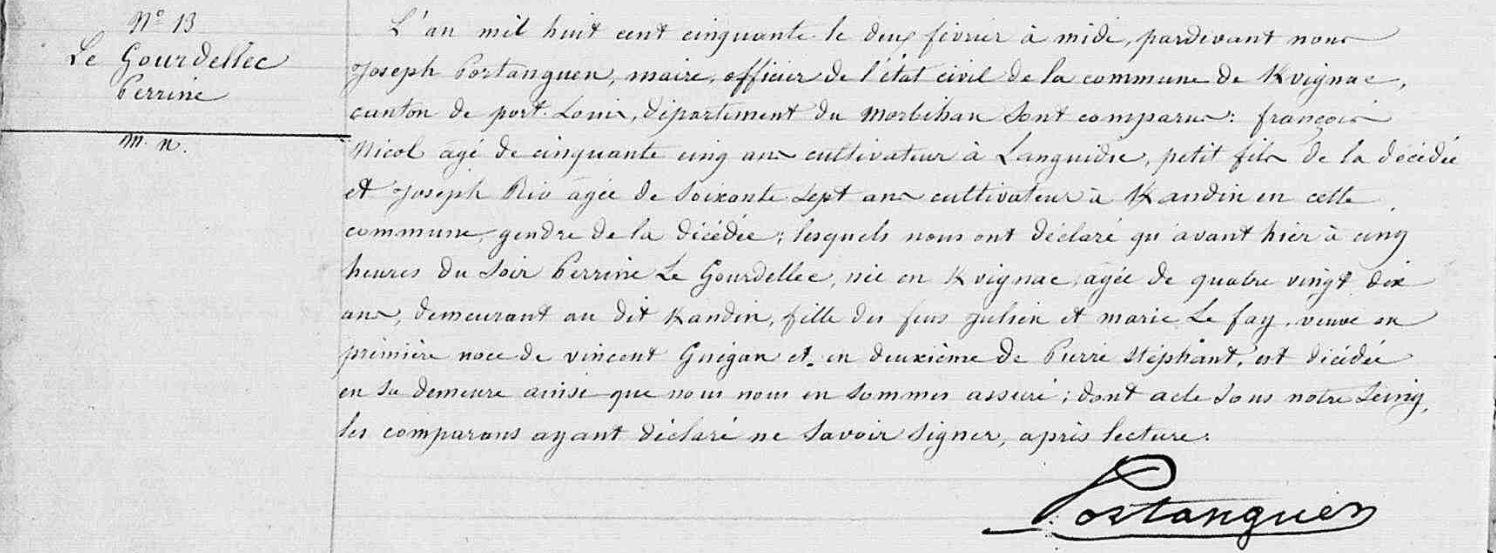 N° 13
Le Gourdellec
Perrine
m. n.
L'an mil huit cent cinquante le deux février à midi, pardevant nous
Joseph Postanguen, maire, officier de l'état civil de la commune de Kvignac,
canton de port-Louis, département du Morbihan sont comparus: françois
Nicol agé de cinquante cinq ans cultivateur à Languidic, petit fils de la décédée
et Joseph Rio agée de soixante sept ans cultivateur à Kandin en cette
commune, gendre de la décédée; lesquels nous ont déclaré qu'avant hier à cinq
heures du soir Perrine Le Gourdellec, née en Kvignac, agée de quatre vingt dix
ans, demeurant au dit Kandin, fille des feus Julien et marie Le fay, veuve en
première noce de vincent Guégan et en deuxième de Pierre Stéphant, est décédée
en sa demeure ainsi que nous nous en sommes assuré; dont acte sous notre seing,
les comparans ayant déclaré ne savoir signer, après lecture.
Postanguen